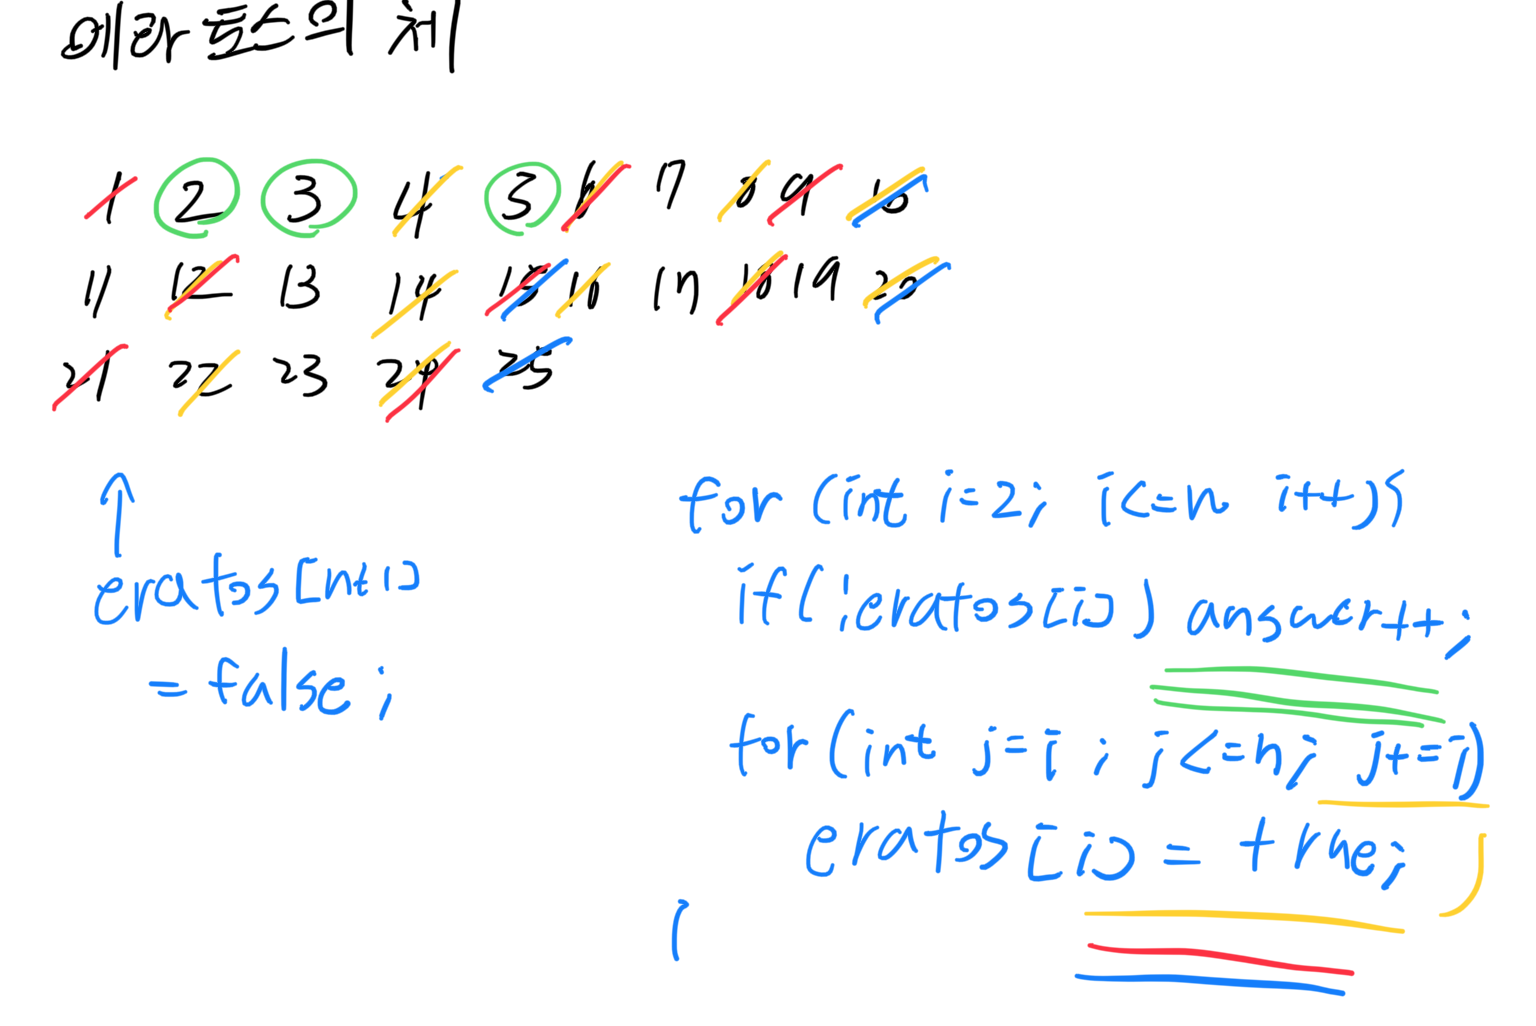 에라토스의 체
1 2 3 4 5 6 7 8 9 10
11 12 13 14 15 16 17 18 19 20
21 22 23 24 25
eratos[n+1]
= false;
for (int i=2; i<=n i++){
if(!eratos[i]) answer++;
for(int j=i; j<=n; j+=i)
eratos[i] = true;